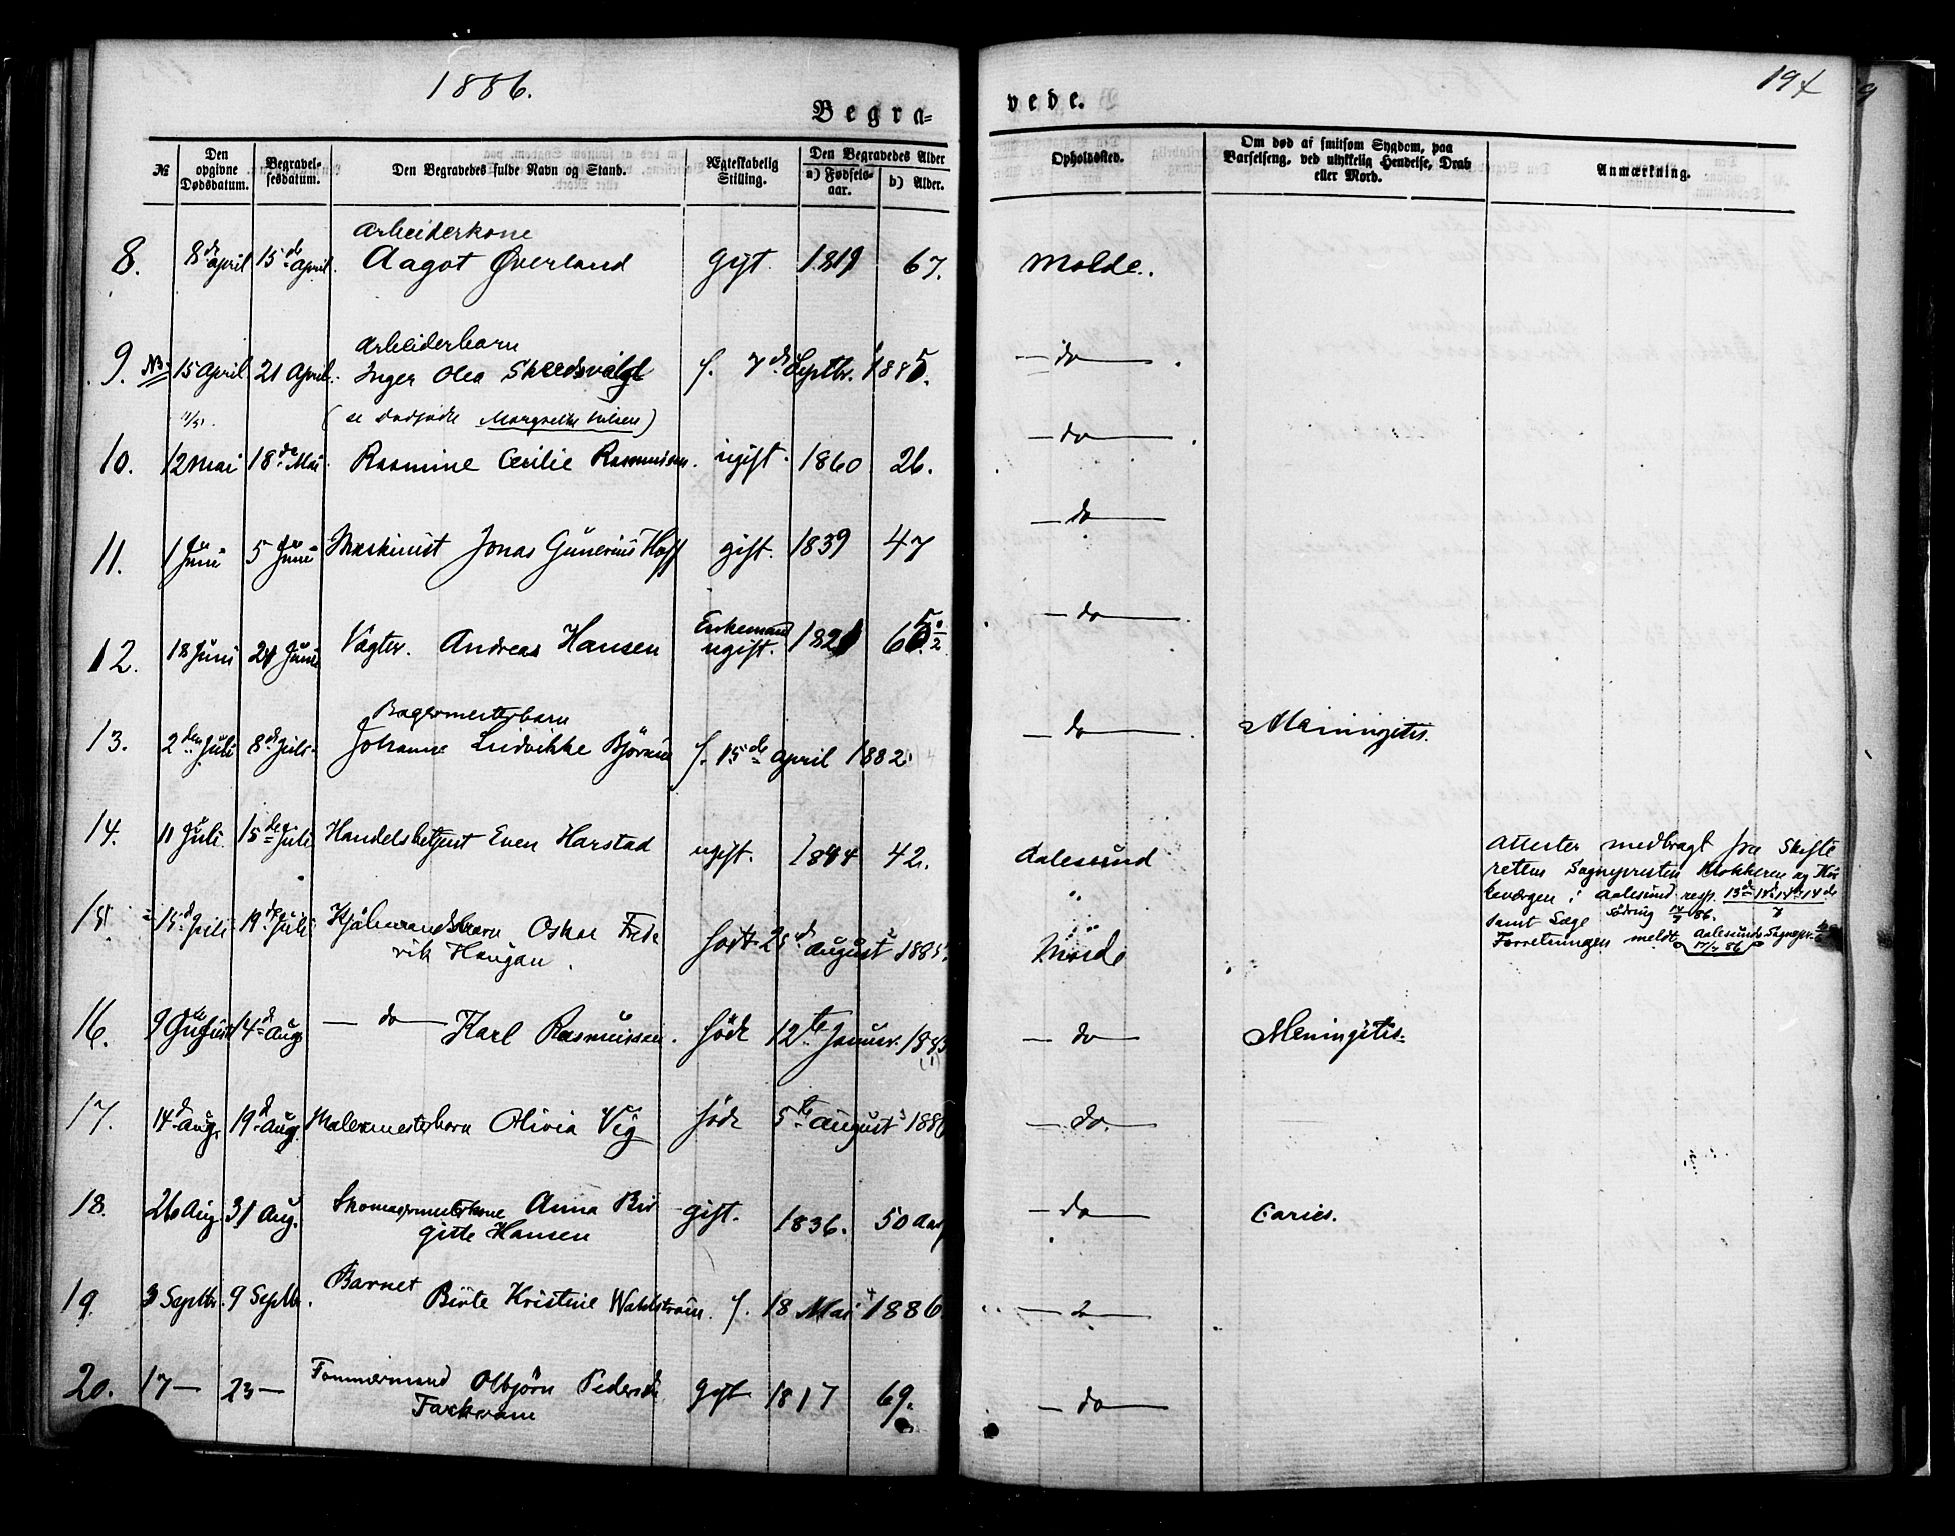 1886.
194
Begra=
vede.
№
Den opgivne Dødsdatum.
Begravelsesdatum.
Den Begravedes fulde Navn og Stand.
Ægteskabelig Stilling.
Den Begravedes Alder
a) Fødselsaar.
b) Alder.
Opholdssted.
Om død af smitsom Sygdom, paa Barselseng, ved ulykkelig Hendelse, Drab eller Mord.
Anmærkning.
Arbeiderkone
8. 8de April 15de April. Aagot Øverland gift. 1819 67. Molde.
Arbeiderbarn
9. NB 15 April 21 April. Inger Olea f. 7d Septbr. 1885. — do —
(se dødfødte Margrethe Nilsen)
10. 12 Mai 18de Mai Rasmine Cecilie Rasmussen. ugift. 1860 26. — do —
11. 1 Juni 5 Juni Maskinist Jonas Gunerius Hoff gift. 1839 47 — do —
Enkemand
12. 18 Juni 24 Juni Vægter. Andreas Hansen ugift. 1821 65 — do —
Bagermesterbarn
13. 2den Juli 8d Juli Johanne Ludvikke Bjørnin f. 15de April 1882. — do — Meningitis.
14. 11 Juli 15de Juli Handelsbetjent Even Harstad ugift. 1844 42. Aalesund
Attester medbragt fra Skifte
retten Sognepresten Klokkeren og Kir
keværgen i Aalesund resp.
samt
Forretningen meldt Aalesunds Sognepr.
17/7 86
15. 15d Juli 19de Juli Oskar Fred
rik Haugan. født 28d August 1885. Molde
16. 9 August 14d Aug — do — Karl Rasmussen. født 12te Januar. — do — Meningitis.
17. 14d Aug. 19d Aug. Malermesterbarn Olivia Vig født 5te August 1886 — do. —
18. 26 Aug 31 Aug. Skomagermesterkone Anna Bir
gitte Hansen gift. 1836. 50 Aar — do — Caries.
19. 3 Septbr. 9 Septbr. Barnet
Birte Kristine Wahlstrøm. f. 18 Mai 1886.
20. 17 — 23 — Tømmermand Olbjørn Pedersen gift 1817 69. — do —